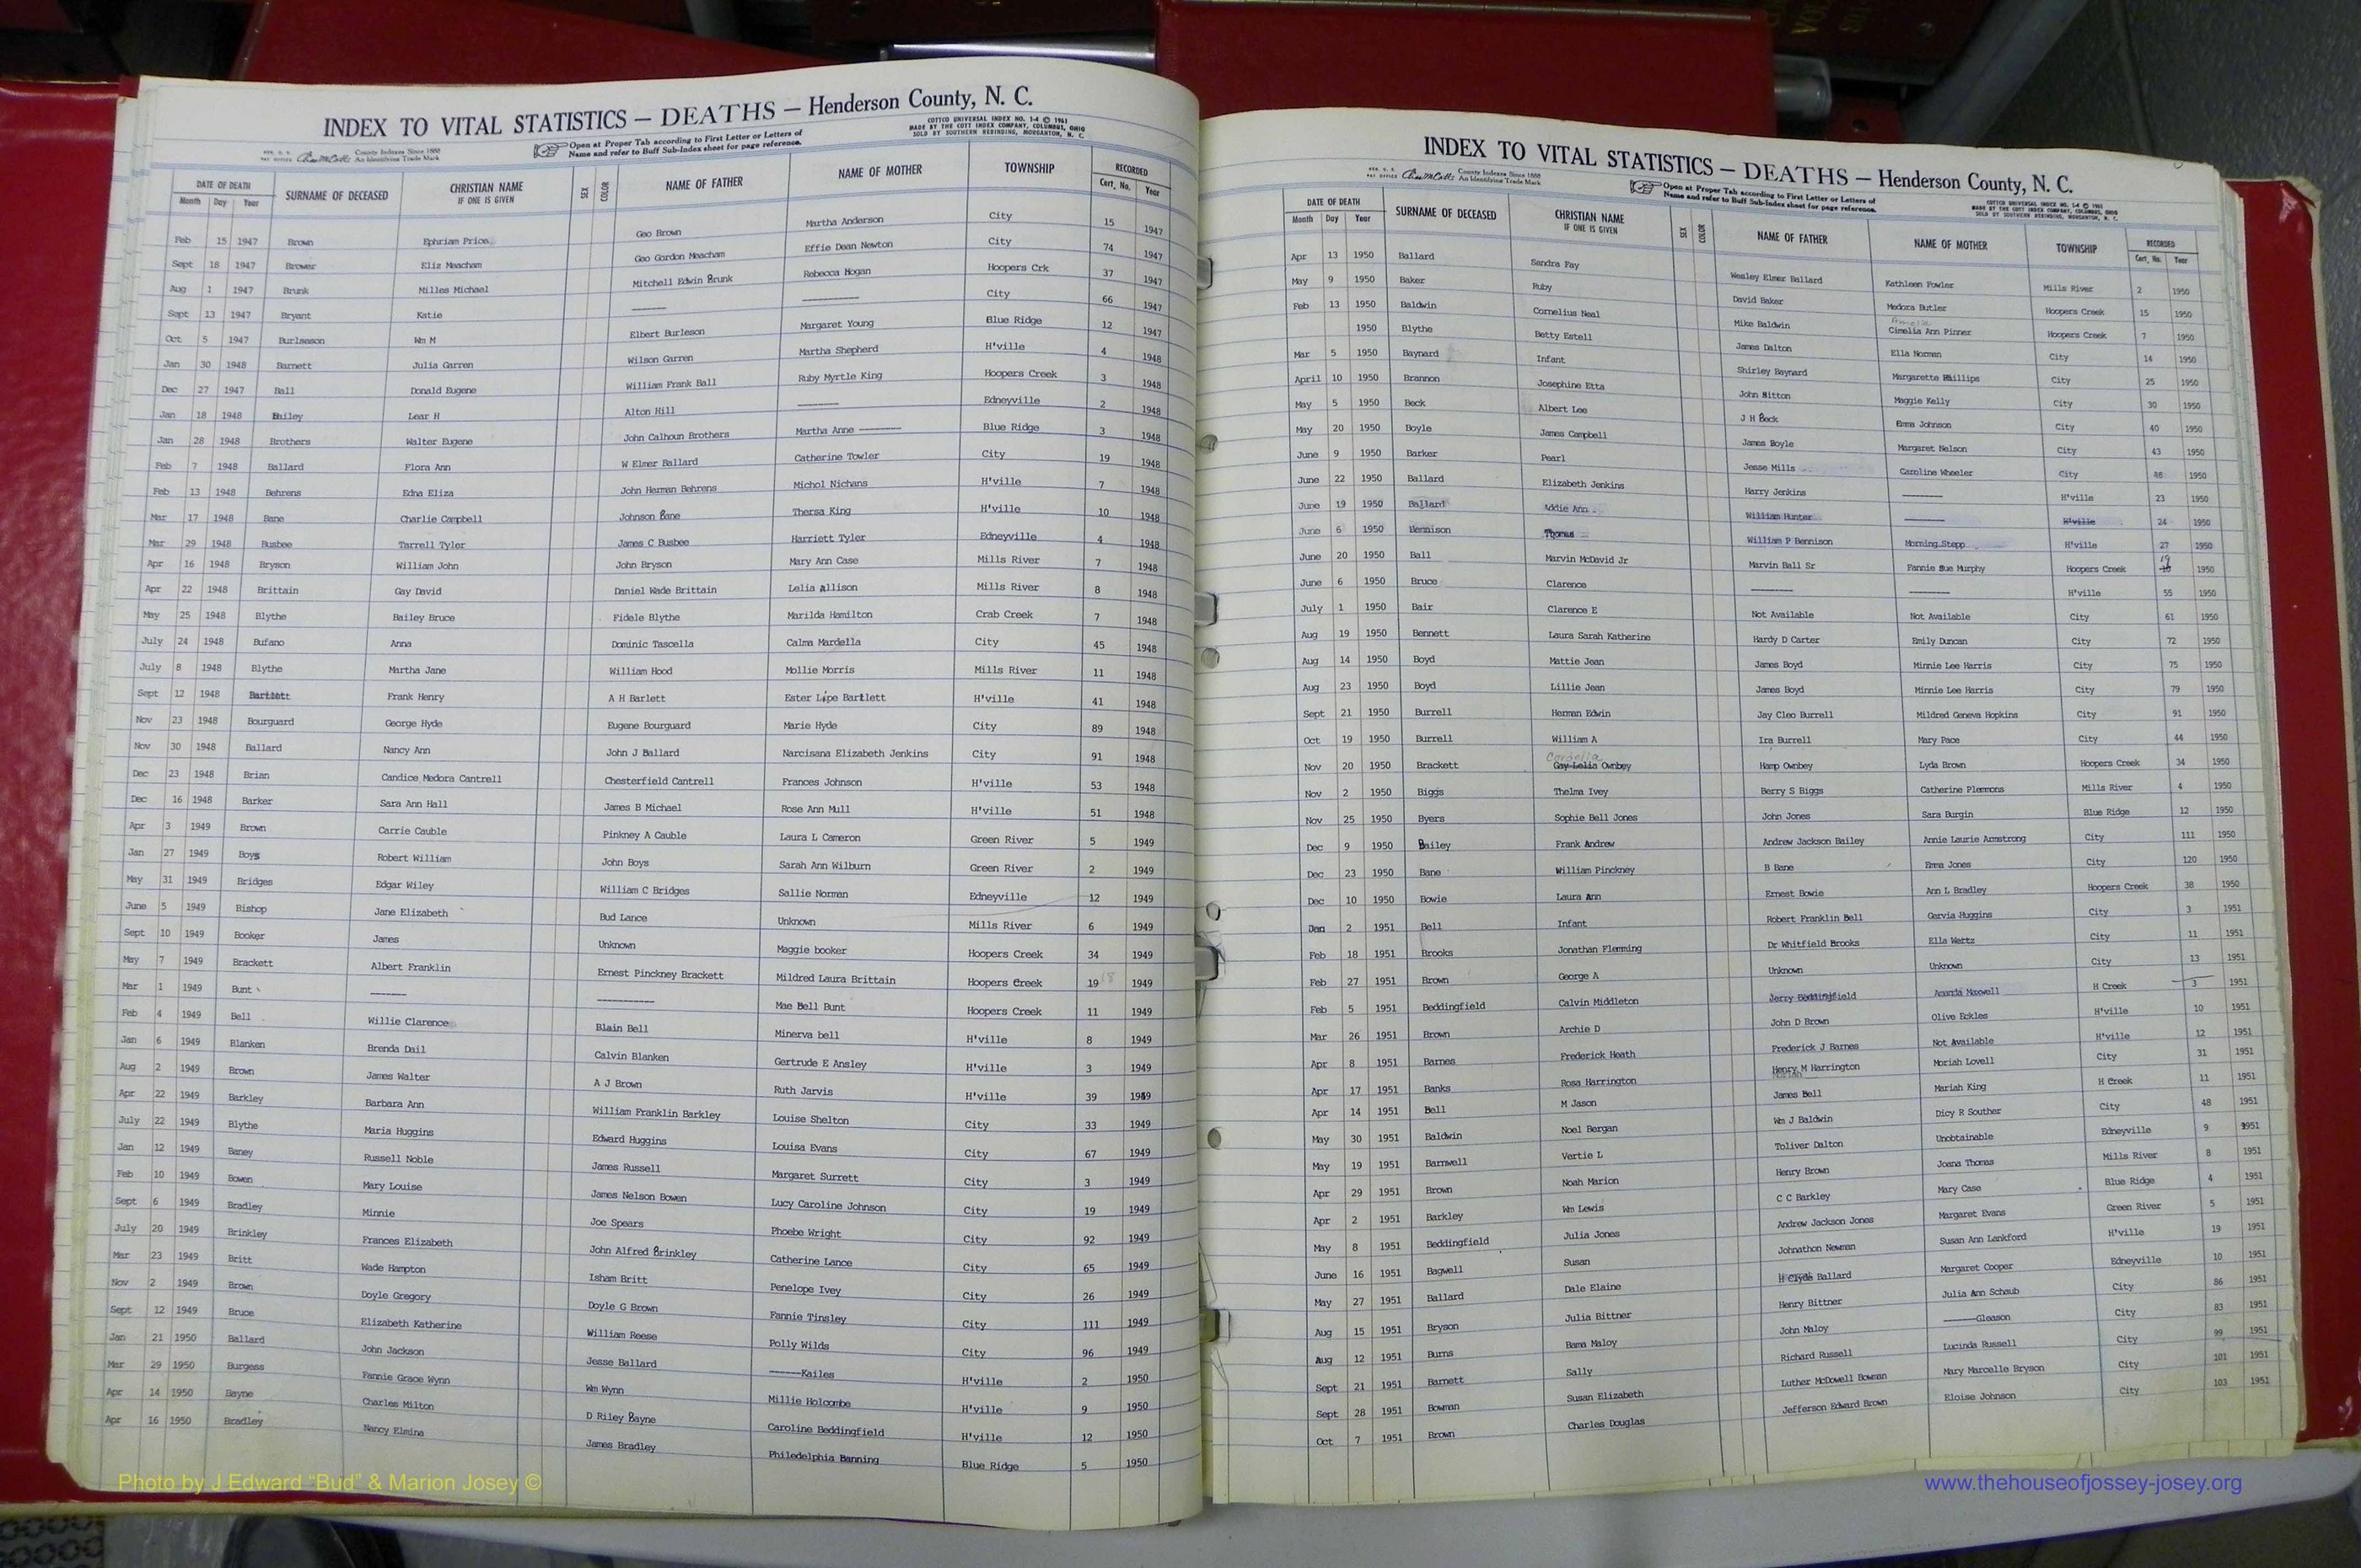 INDEX TO VITAL STATISTICS — DEATHS — Henderson County, N. C.
COTTCO UNIVERSAL INDEX NO. 1-4 © 1961
MADE BY THE COTT INDEX COMPANY, COLUMBUS, OHIO
SOLD BY SOUTHERN REBINDING, MORGANTON, N. C.
County Indexes Since 1888
An Identifying Trade Mark
Open at Proper Tab according to First Letter or Letters of
Name and refer to Buff Sub-Index sheet for page reference.
DATE OF DEATH SURNAME OF DECEASED CHRISTIAN NAME IF ONE IS GIVEN SEX COLOR NAME OF FATHER NAME OF MOTHER TOWNSHIP RECORDED
Month Day Year Cert. No. Year
Feb 15 1947 Brown Ephriam Price Geo Brown Martha Anderson City 15 1947
Sept 18 1947 Brower Eliz Meacham Geo Gordon Meacham Effie Dean Newton City 74 1947
Aug 1 1947 Brunk Milles Michael Mitchell Edwin Brunk Rebecca Hogan Hoopers Crk 37 1947
Sept 13 1947 Bryant Katie ------ ---------- City 66 1947
Oct 5 1947 Burlseson Wm M Elbert Burleson Margaret Young Blue Ridge 12 1947
Jan 30 1948 Barnett Julia Garren Wilson Garren Martha Shepherd H'ville 4 1948
Dec 27 1947 Ball Donald Eugene William Frank Ball Ruby Myrtle King Hoopers Creek 3 1948
Jan 18 1948 Bailey Lear H Alton Hill ------- Edneyville 2 1948
Jan 28 1948 Brothers Walter Eugene John Calhoun Brothers Martha Anne ------- Blue Ridge 3 1948
Feb 7 1948 Ballard Flora Ann W Elmer Ballard Catherine Towler City 19 1948
Feb 13 1948 Behrens Edna Eliza John Herman Behrens Michol Nichans H'ville 7 1948
Mar 17 1948 Bane Charlie Campbell Johnson Bane Thersa King H'ville 10 1948
Mar 29 1948 Busbee Tarrell Tyler James C Busbee Harriett Tyler Edneyville 4 1948
Apr 16 1948 Bryson William John John Bryson Mary Ann Case Mills River 7 1948
Apr 22 1948 Brittain Gay David Daniel Wade Brittain Lelia Allison Mills River 8 1948
May 25 1948 Blythe Bailey Bruce Fidele Blythe Marilda Hamilton Crab Creek 7 1948
July 24 1948 Bufano Anna Dominic Tascella Calma Mardella City 45 1948
July 8 1948 Blythe Martha Jane William Hood Mollie Morris Mills River 11 1948
Sept 12 1948 Bartlett Frank Henry A H Barlett Ester Lipe Bartlett H'ville 41 1948
Nov 23 1948 Bourguard George Hyde Eugene Bourguard Marie Hyde City 89 1948
Nov 30 1948 Ballard Nancy Ann John J Ballard Narcisana Elizabeth Jenkins City 91 1948
Dec 23 1948 Brian Candice Medora Cantrell Chesterfield Cantrell Frances Johnson H'ville 53 1948
Dec 16 1948 Barker Sara Ann Hall James B Michael Rose Ann Mull H'ville 51 1948
Apr 3 1949 Brown Carrie Cauble Pinkney A Cauble Laura L Cameron Green River 5 1949
Jan 27 1949 Boys Robert William John Boys Sarah Ann Wilburn Green River 2 1949
May 31 1949 Bridges Edgar Wiley William C Bridges Sallie Norman Edneyville 12 1949
June 5 1949 Bishop Jane Elizabeth Bud Lance Unknown Mills River 6 1949
Sept 10 1949 Booker James Unknown Maggie booker Hoopers Creek 34 1949
May 7 1949 Brackett Albert Franklin Ernest Pinckney Brackett Mildred Laura Brittain Hoopers Creek 19 18 1949
Mar 1 1949 Bunt ------- ----------- Mae Bell Bunt Hoopers Creek 11 1949
Feb 4 1949 Bell Willie Clarence Blain Bell Minerva bell H'ville 8 1949
Jan 6 1949 Blanken Brenda Dail Calvin Blanken Gertrude E Ansley H'ville 3 1949
Aug 2 1949 Brown James Walter A J Brown Ruth Jarvis H'ville 39 1949
Apr 22 1949 Barkley Barbara Ann William Franklin Barkley Louise Shelton City 33 1949
July 22 1949 Blythe Maria Huggins Edward Huggins Louisa Evans City 67 1949
Jan 12 1949 Baney Russell Noble James Russell Margaret Surrett City 3 1949
Feb 10 1949 Bowen Mary Louise James Nelson Bowen Lucy Caroline Johnson City 19 1949
Sept 6 1949 Bradley Minnie Joe Spears Phoebe Wright City 92 1949
July 20 1949 Brinkley Frances Elizabeth John Alfred Brinkley Catherine Lance City 65 1949
Mar 23 1949 Britt Wade Hampton Isham Britt Penelope Ivey City 26 1949
Nov 2 1949 Brown Doyle Gregory Doyle G Brown Fannie Tinsley City 111 1949
Sept 12 1949 Bruce Elizabeth Katherine William Reese Polly Wilds City 96 1949
Jan 21 1950 Ballard John Jackson Jesse Ballard ------Kailes H'ville 2 1950
Mar 29 1950 Burgess Fannie Grace Wynn Wm Wynn Millie Holcombe H'ville 9 1950
Apr 14 1950 Bayne Charles Milton D Riley Bayne Caroline Beddingfield H'ville 12 1950
Apr 16 1950 Bradley Nancy Elmina James Bradley Philedelphia Banning Blue Ridge 5 1950
INDEX TO VITAL STATISTICS — DEATHS — Henderson County, N. C.
COTTCO UNIVERSAL INDEX NO. 1-4 © 1961
MADE BY THE COTT INDEX COMPANY, COLUMBUS, OHIO
SOLD BY SOUTHERN REBINDING, MORGANTON, N. C.
County Indexes Since 1888
An Identifying Trade Mark
Open at Proper Tab according to First Letter or Letters of
Name and refer to Buff Sub-Index sheet for page reference.
DATE OF DEATH SURNAME OF DECEASED CHRISTIAN NAME IF ONE IS GIVEN SEX COLOR NAME OF FATHER NAME OF MOTHER TOWNSHIP RECORDED
Month Day Year Cert. No. Year
Apr 13 1950 Ballard Sandra Fay Wesley Elmer Ballard Kathleen Fowler Mills River 2 1950
May 9 1950 Baker Ruby David Baker Medora Butler Hoopers Creek 15 1950
Feb 13 1950 Baldwin Cornelius Neal Mike Baldwin Cimelia Ann Pinner Hoopers Creek 7 1950
1950 Blythe Betty Estell James Dalton Ella Norman City 14 1950
Mar 5 1950 Baynard Infant Shirley Baynard Margarette Phillips City 25 1950
April 10 1950 Brannon Josephine Etta John Sitton Maggie Kelly City 30 1950
May 5 1950 Beck Albert Lee J H Beck Emma Johnson City 40 1950
May 20 1950 Boyle James Campbell James Boyle Margaret Nelson City 43 1950
June 9 1950 Barker Pearl Jesse Mills Caroline Wheeler City 46 1950
June 22 1950 Ballard Elizabeth Jenkins Harry Jenkins -------- H'ville 23 1950
June 19 1950 Ballard Addie Ann William Hunter -------- H'ville 24 1950
June 6 1950 Bennison Thomas William P Bennison Morning Stepp H'ville 27 1950
June 20 1950 Ball Marvin McDavid Jr Marvin Ball Sr Fannie Sue Murphy Hoopers Creek 19 1950
June 6 1950 Bruce Clarence -------- -------- H'ville 55 1950
July 1 1950 Bair Clarence E Not Available Not Available City 61 1950
Aug 19 1950 Bennett Laura Sarah Katherine Hardy D Carter Emily Duncan City 72 1950
Aug 14 1950 Boyd Mattie Jean James Boyd Minnie Lee Harris City 75 1950
Aug 23 1950 Boyd Lillie Jean James Boyd Minnie Lee Harris City 79 1950
Sept 21 1950 Burrell Herman Edwin Jay Cleo Burrell Mildred Geneva Hopkins City 91 1950
Oct 19 1950 Burrell William A Ira Burrell Mary Pace City 44 1950
Nov 20 1950 Brackett Cordelia Gay Lelia Ownbey Hamp Ownbey Lyda Brown Hoopers Creek 34 1950
Nov 2 1950 Biggs Thelma Ivey Berry S Biggs Catherine Plemmons Mills River 4 1950
Nov 25 1950 Byers Sophie Bell Jones John Jones Sara Burgin Blue Ridge 12 1950
Dec 9 1950 Bailey Frank Andrew Andrew Jackson Bailey Annie Laurie Armstrong City 111 1950
Dec 23 1950 Bane William Pinckney B Bane Emma Jones City 120 1950
Dec 10 1950 Bowie Laura Ann Ernest Bowie Ann L Bradley Hoopers Creek 38 1950
Jan 2 1951 Bell Infant Robert Franklin Bell Gervia Huggins City 3 1951
Feb 18 1951 Brooks Jonathan Flemming Dr Whitfield Brooks Ella Wertz City 11 1951
Feb 27 1951 Brown George A Unknown Unknown City 13 1951
Feb 5 1951 Beddingfield Calvin Middleton Jerry Beddingfield Amanda Maxwell H Creek 3 1951
Mar 26 1951 Brown Archie D John D Brown Olive Eckles H'ville 10 1951
Apr 8 1951 Barnes Frederick Heath Frederick J Barnes Not Available H'ville 12 1951
Apr 17 1951 Banks Rosa Harrington Henry M Harrington Moriah Lovell City 31 1951
Apr 14 1951 Bell M Jason James Bell Mariah King H Creek 11 1951
May 30 1951 Baldwin Noel Bergan Wm J Baldwin Dicy R Souther City 48 1951
May 19 1951 Barnwell Vertie L Toliver Dalton Unobtainable Edneyville 9 1951
Apr 29 1951 Brown Noah Marion Henry Brown Joana Thomas Mills River 8 1951
Apr 2 1951 Barkley Wm Lewis C C Barkley Mary Case Blue Ridge 4 1951
May 8 1951 Beddingfield Julia Jones Andrew Jackson Jones Margaret Evans Green River 5 1951
June 16 1951 Bagwell Susan Johnathon Newman Susan Ann Lankford H'ville 19 1951
May 27 1951 Ballard Dale Elaine H Clyde Ballard Margaret Cooper Edneyville 10 1951
Aug 15 1951 Bryson Julia Bittner Henry Bittner Julia Ann Schaub City 86 1951
Aug 12 1951 Burns Bama Maloy John Maloy ------Gleason City 83 1951
Sept 21 1951 Barnett Sally Richard Russell Lucinda Russell City 99 1951
Sept 28 1951 Bowman Susan Elizabeth Luther McDowell Bowman Mary Marcelle Bryson City 101 1951
Oct 7 1951 Brown Charles Douglas Jefferson Edward Brown Eloise Johnson City 103 1951
Photo by J Edward “Bud” & Marion Josey ©
www.thehouseofjossey-josey.org